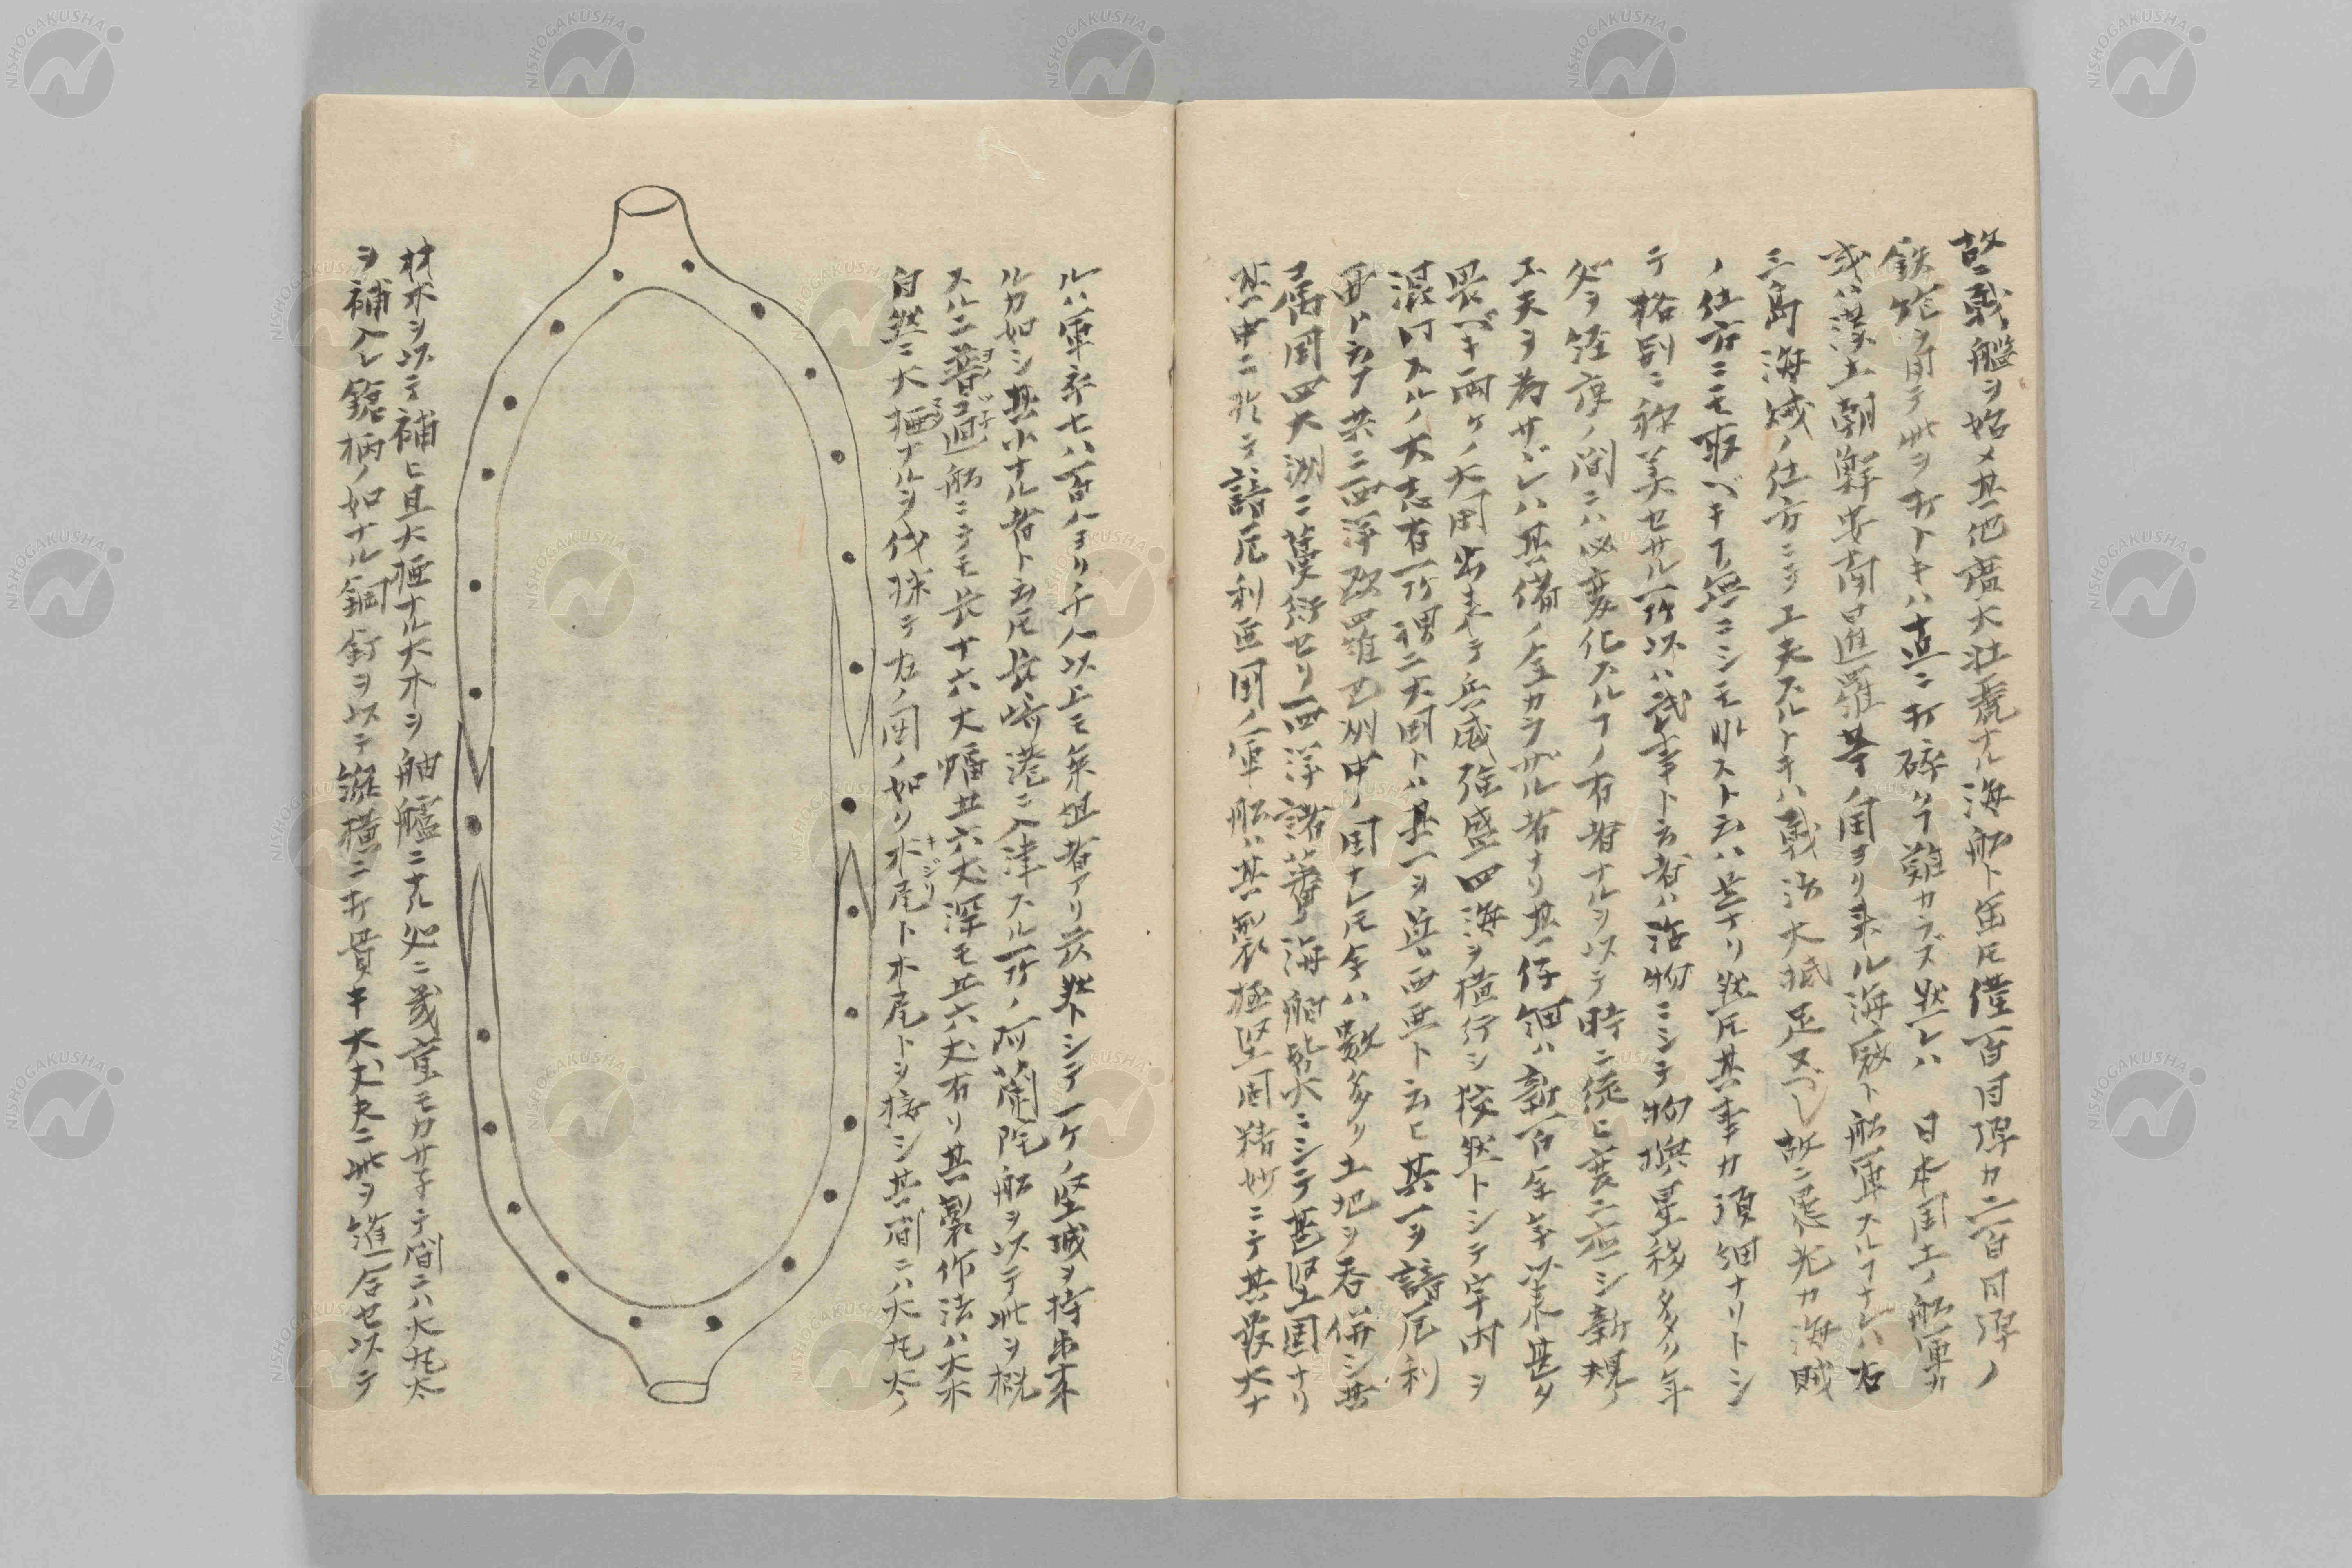 故ニ戦艦ヲ始メ其他廣大壮麗ナル海舶ト雖𪜈僅百目弾カ二百目弾ノ
鉄炮ヲ用テ此ヲ打トキハ直ニ打碎ク難カラズ然レハ日本国土ノ船軍カ
或ハ漢土朝鮮安南暹羅等ノ国ヨリ来ル海寇ト船軍スルヿナレハ右
三島海賊ノ仕方ニテ工夫スルトキハ戦法大抵足ヌベシ故ニ海賊
ノ仕方ニモ取ベキヿ無ニシモ非スト云ハ是ナリ然𪜈其事カ須細ナリトシ
テ格別ニ称美セサル所以ハ武事ト云者ハ活物ニシテ物換星移タクリ年
ヲ経療ノ間ニハ必変化スルヿノ有者ナルヲ以テ時ニ従ヒ変ニ應シ新規ノ
工夫ヲ為サヾレハ其備ノ全カラザル者ナリ其仔細ハ新百年以来甚タ
畏ベキ両ケノ大国出来テ兵威強盛四海ヲ横行シ揆然トシテ宇内ヲ
混同スルノ大志有所謂二大国トハ其一ヲ魯西亜ト云ヒ其一ヲ諳厄利
亜ト云ナ共ニ西洋欧羅巴洲中ノ国ナレ𪜈今ハ数多ノ土地ヲ呑併シ其
属国四大洲ニ蔓衍セリ西洋諸蕃ノ海舶皆大ニシテ甚堅固ナリ
其中ニ於テ諳厄利亜国ノ軍船ハ其製極堅固精妙ニテ其最大ナ
ルハ軍衆七八百人ヨリ千人以上モ乗組者アリ炭然トシテ一ケノ堅城ヲ持出来
ルカ如シ其小ナル者ト云𪜈長崎港ニ入津スル所ノ阿蘭陀船ヲ以テ此ヲ概
スルニ普通ノ船ニテモ長十六丈幅廿六丈深モ廿六丈有リ其製作法ハ大木
自然ニ大極ナルヲ伐採テ左ノ図ノ如ク木尾ト木尾トヲ接シ其間ニハ大丸太ノ
キジリ
材木ヲ以テ補ヒ且大極ナル大木ヲ舳艫ニナル処ニ幾重モカサ子テ間ニハ大丸太
ヲ補入レ鎗柄ノ如ナル銅釘ヲ以テ縦横ニ打貫キ大丈夫ニ此ヲ縫合セ以テ